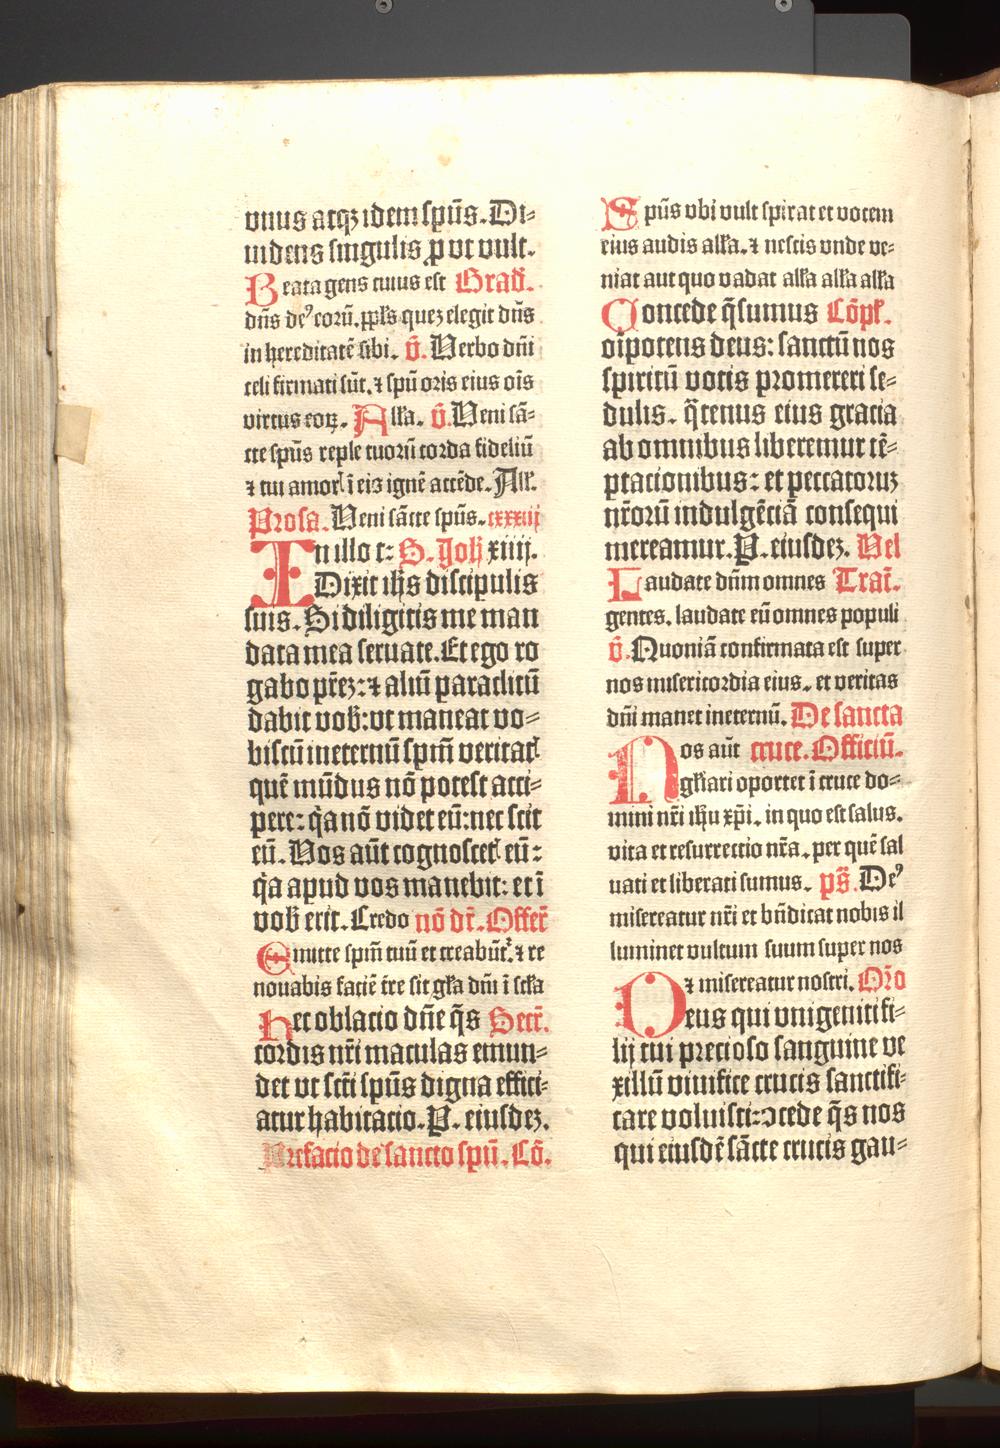 vnus atqꝫ idem spūs. Di⸗
uidens singulis ꝓ vt vult.
Beata gens cuius est Grad̄.
dn̄s de⁹ eorū. ppl̄s quez elegit dn̄s
in hereditatē sibi. v̄. Verbo dn̄i
celi firmati sūt. ⁊ spū oris eius oīs
virtus eoꝝ. Alla. v̄. Veni sā⸗
cte spūs reple tuorū corda fideliū
⁊ tui amorꝭ ī eis ignē accēde. All'.
Prosa. Veni sācte spūs. cxxxiij
In illo t: S. Joh̄ xiiij.
Dixit ih̄s discipulis
suis. Si diligitis me man
data mea seruate. Et ego ro
gabo pr̄ez: ⁊ aliū paraclitū
dabit vob̄: vt maneat vo⸗
biscū ineternū spm̄ veritatꝭ
quē mūdus nō potest acci⸗
pere: q̄a nō videt eū: nec scit
eū. Vos aūt cognoscetꝭ eū:
q̄a apud vos manebit: et ī
vob̄ erit. Credo nō dr̄. Offer̄
Emitte spm̄ tuū et creabūt᷑. ⁊ re
nouabis faciē tre sit gl̄a dn̄i ī scl̄a
Hec oblacio dn̄e q̄s Secr̄.
cordis nr̄i maculas emun⸗
det vt scti spūs digna effici⸗
atur habitacio. P. eiusdeꝫ.
Prefacio de sancto spū. Cō.
Spūs vbi vult spirat et vocem
eius audis alla. ⁊ nescis vnde ve⸗
niat aut quo vadat alla alla alla
Concede q̄sumus Cōpl'.
oīpotens deus: sanctū nos
spiritū votis promereri se⸗
dulis. q̄tenus eius gracia
ab omnibus liberemur tē⸗
ptacionibus: et peccatoruꝫ
nr̄orū indulgēciā consequi
mereamur. P. eiusdeꝫ. Vel
Laudate dn̄m omnes Tract̄.
gentes. laudate eū omnes populi
v̄. Quoniā confirmata est super
nos misericordia eius. et veritas
dn̄i manet ineternū. De sancta
Nos aūt cruce. Officiū.
gl̄iari oportet ī cruce do⸗
mini nr̄i ih̄u xp̄i. in quo est salus.
vita et resurrectio nr̄a. per quē sal
uati et liberati sumus. ps̄. De⁹
misereatur nr̄i et bn̄dicat nobis il
luminet vultum suum super nos
⁊ misereatur nostri. Or̄o
Deus qui vnigeniti fi⸗
lij tui precioso sanguine ve
xillū viuifice crucis sanctifi⸗
care voluisti: ↄcede q̄s nos
qui eiusdē sācte crucis gau⸗